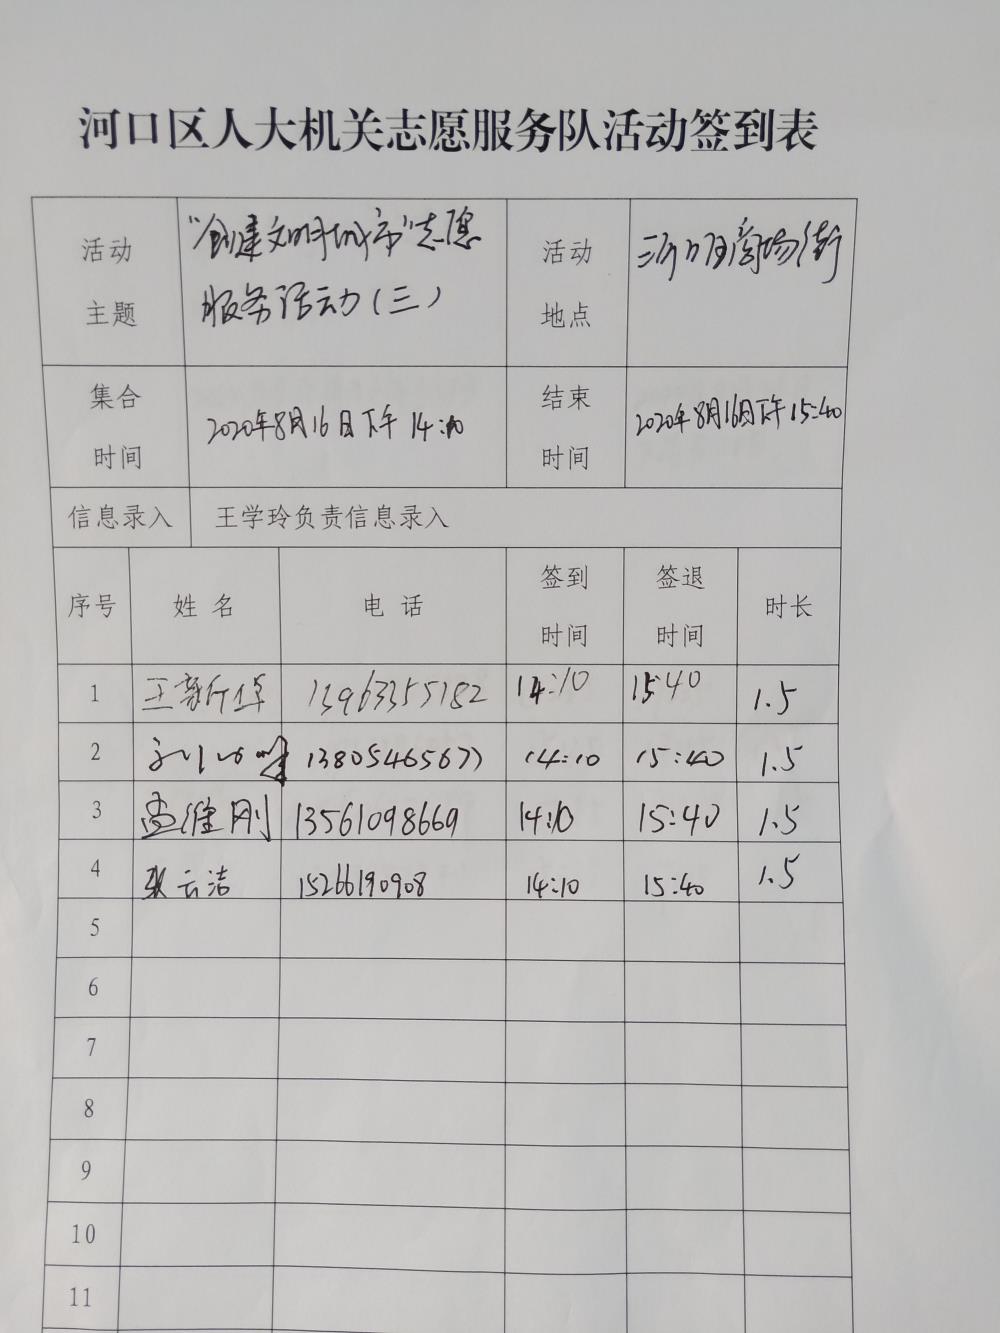 河口区人大机关志愿服务队活动签到表
活动主题 "创建文明城市"志愿服务活动(三) 活动地点 商场街
集合时间 2020年8月16日下午 14:10 结束时间 2020年8月16日下午 15:40
信息录入 王学玲负责信息录入
序号 姓名 电话 签到时间 签退时间 时长
1 王 13963355182 14:10 15:40 1.5
2 14:10 15:40 1.5
3 孟维刚 13561098669 14:10 15:40 1.5
4 张云洁 15266190908 14:10 15:40 1.5
5
6
7
8
9
10
11